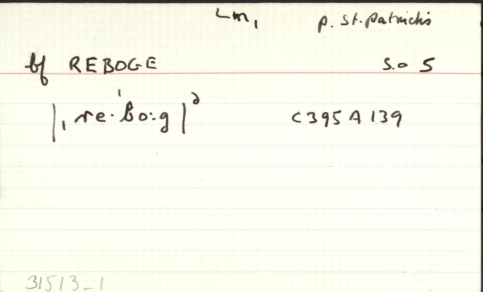 Lm, P. St. Patrick's
bf REBOGE S.O 5
|ˌre·ˈbo:g|² C395A139
31513_1